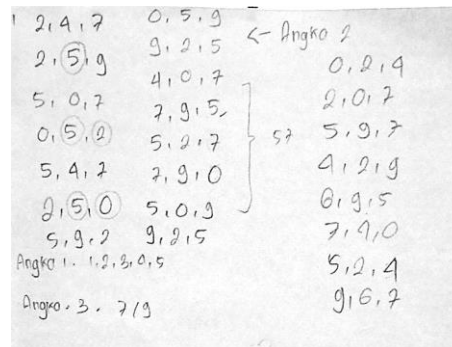 2, 4, 7
2, 5, 9
5, 0, 7
0, 5, 2
5, 4, 7
2, 5, 0
5, 9, 2
Angka 1. 1, 2, 3, 0, 5
Angka. 3. 7/9
0, 5, 9
9, 2, 5
4, 0, 7
7, 9, 5
5, 2, 7
7, 9, 0
5, 0, 9
9, 2, 5
57
← Angka 2
0, 2, 4
2, 0, 7
5, 9, 7
4, 2, 9
6, 9, 5
5, 2, 4
9, 6, 7